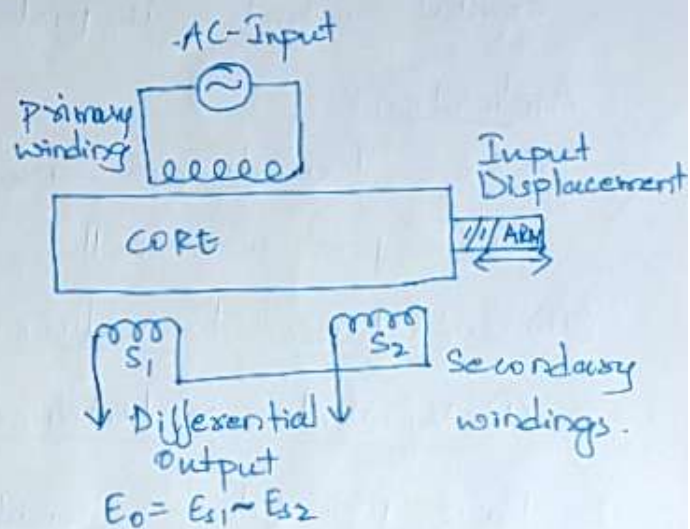 AC-Input
Primary
winding
Input
Displacement
CORE
ARM
S1
S2
Secondary
windings.
Differential
Output
E0 = Es1 ~ Es2